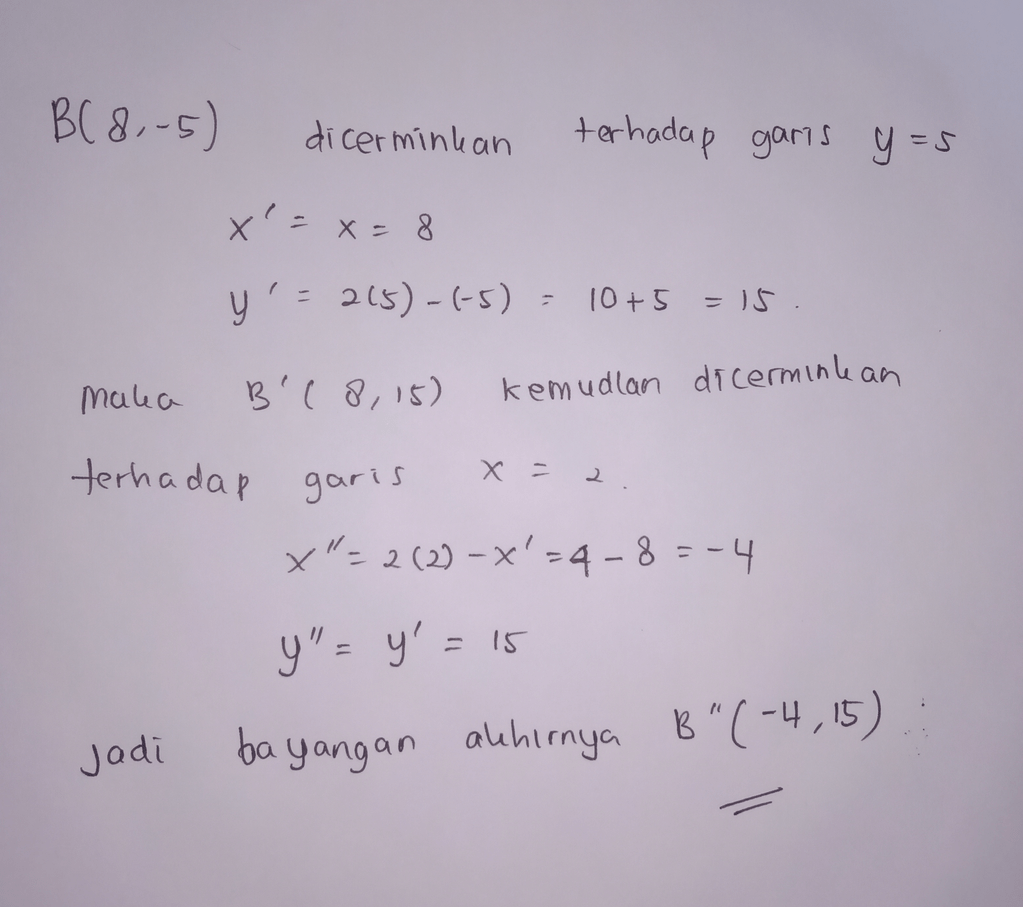 B(8,-5) dicerminkan terhadap garis y = 5
x' = x = 8
y' = 2(5) - (-5) = 10 + 5 = 15.
maka B'(8,15) kemudian dicerminkan
terhadap garis x = 2.
x" = 2(2) - x' = 4 - 8 = -4
y" = y' = 15
Jadi bayangan akhirnya B"(-4,15)